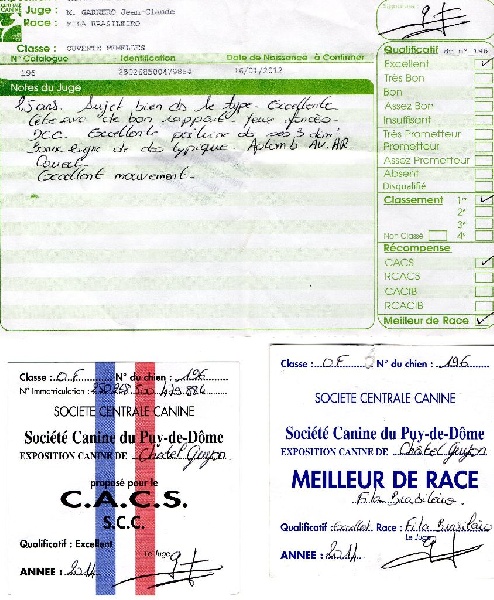 CANINE
Juge : M. GARNERO Jean-Claude
Race : FILA BRASILEIRO
Classe : OUVERTE FEMELLES
N° Catalogue Identification Date de Naissance à Confirmer
196 16/01/2012
Notes du Juge
2,5 ans. Sujet bien ds le type. Excellente
de bon rapport
Excellente ses 3 dim.
Bonne ligne de dos typique. Aplomb AV. AR
Excellent mouvement.
Qualificatif du n° 196
Excellent
Très Bon
Bon
Assez Bon
Insuffisant
Très Prometteur
Prometteur
Assez Prometteur
Absent
Disqualifié
Classement 1er
2e
3e
Non Classé 4e
Récompense
CACS
RCACS
CACIB
RCACIB
Meilleur de Race
Classe : O.F N° du chien : 196
N° Immatriculation :
SOCIETE CENTRALE CANINE
Société Canine du Puy-de-Dôme
EXPOSITION CANINE DE Chatel Guyon
proposé pour le
C.A.C.S.
S.C.C.
Qualificatif : Excellent
Le Juge
ANNEE : 2014
Classe : O F N° du chien : 196
SOCIETE CENTRALE CANINE
Société Canine du Puy-de-Dôme
EXPOSITION CANINE DE Châtel Guyon
MEILLEUR DE RACE
Fila Brasileiro
Qualificatif : Excellent Race : Fila Brasileiro
Le Juge
ANNEE : 2014